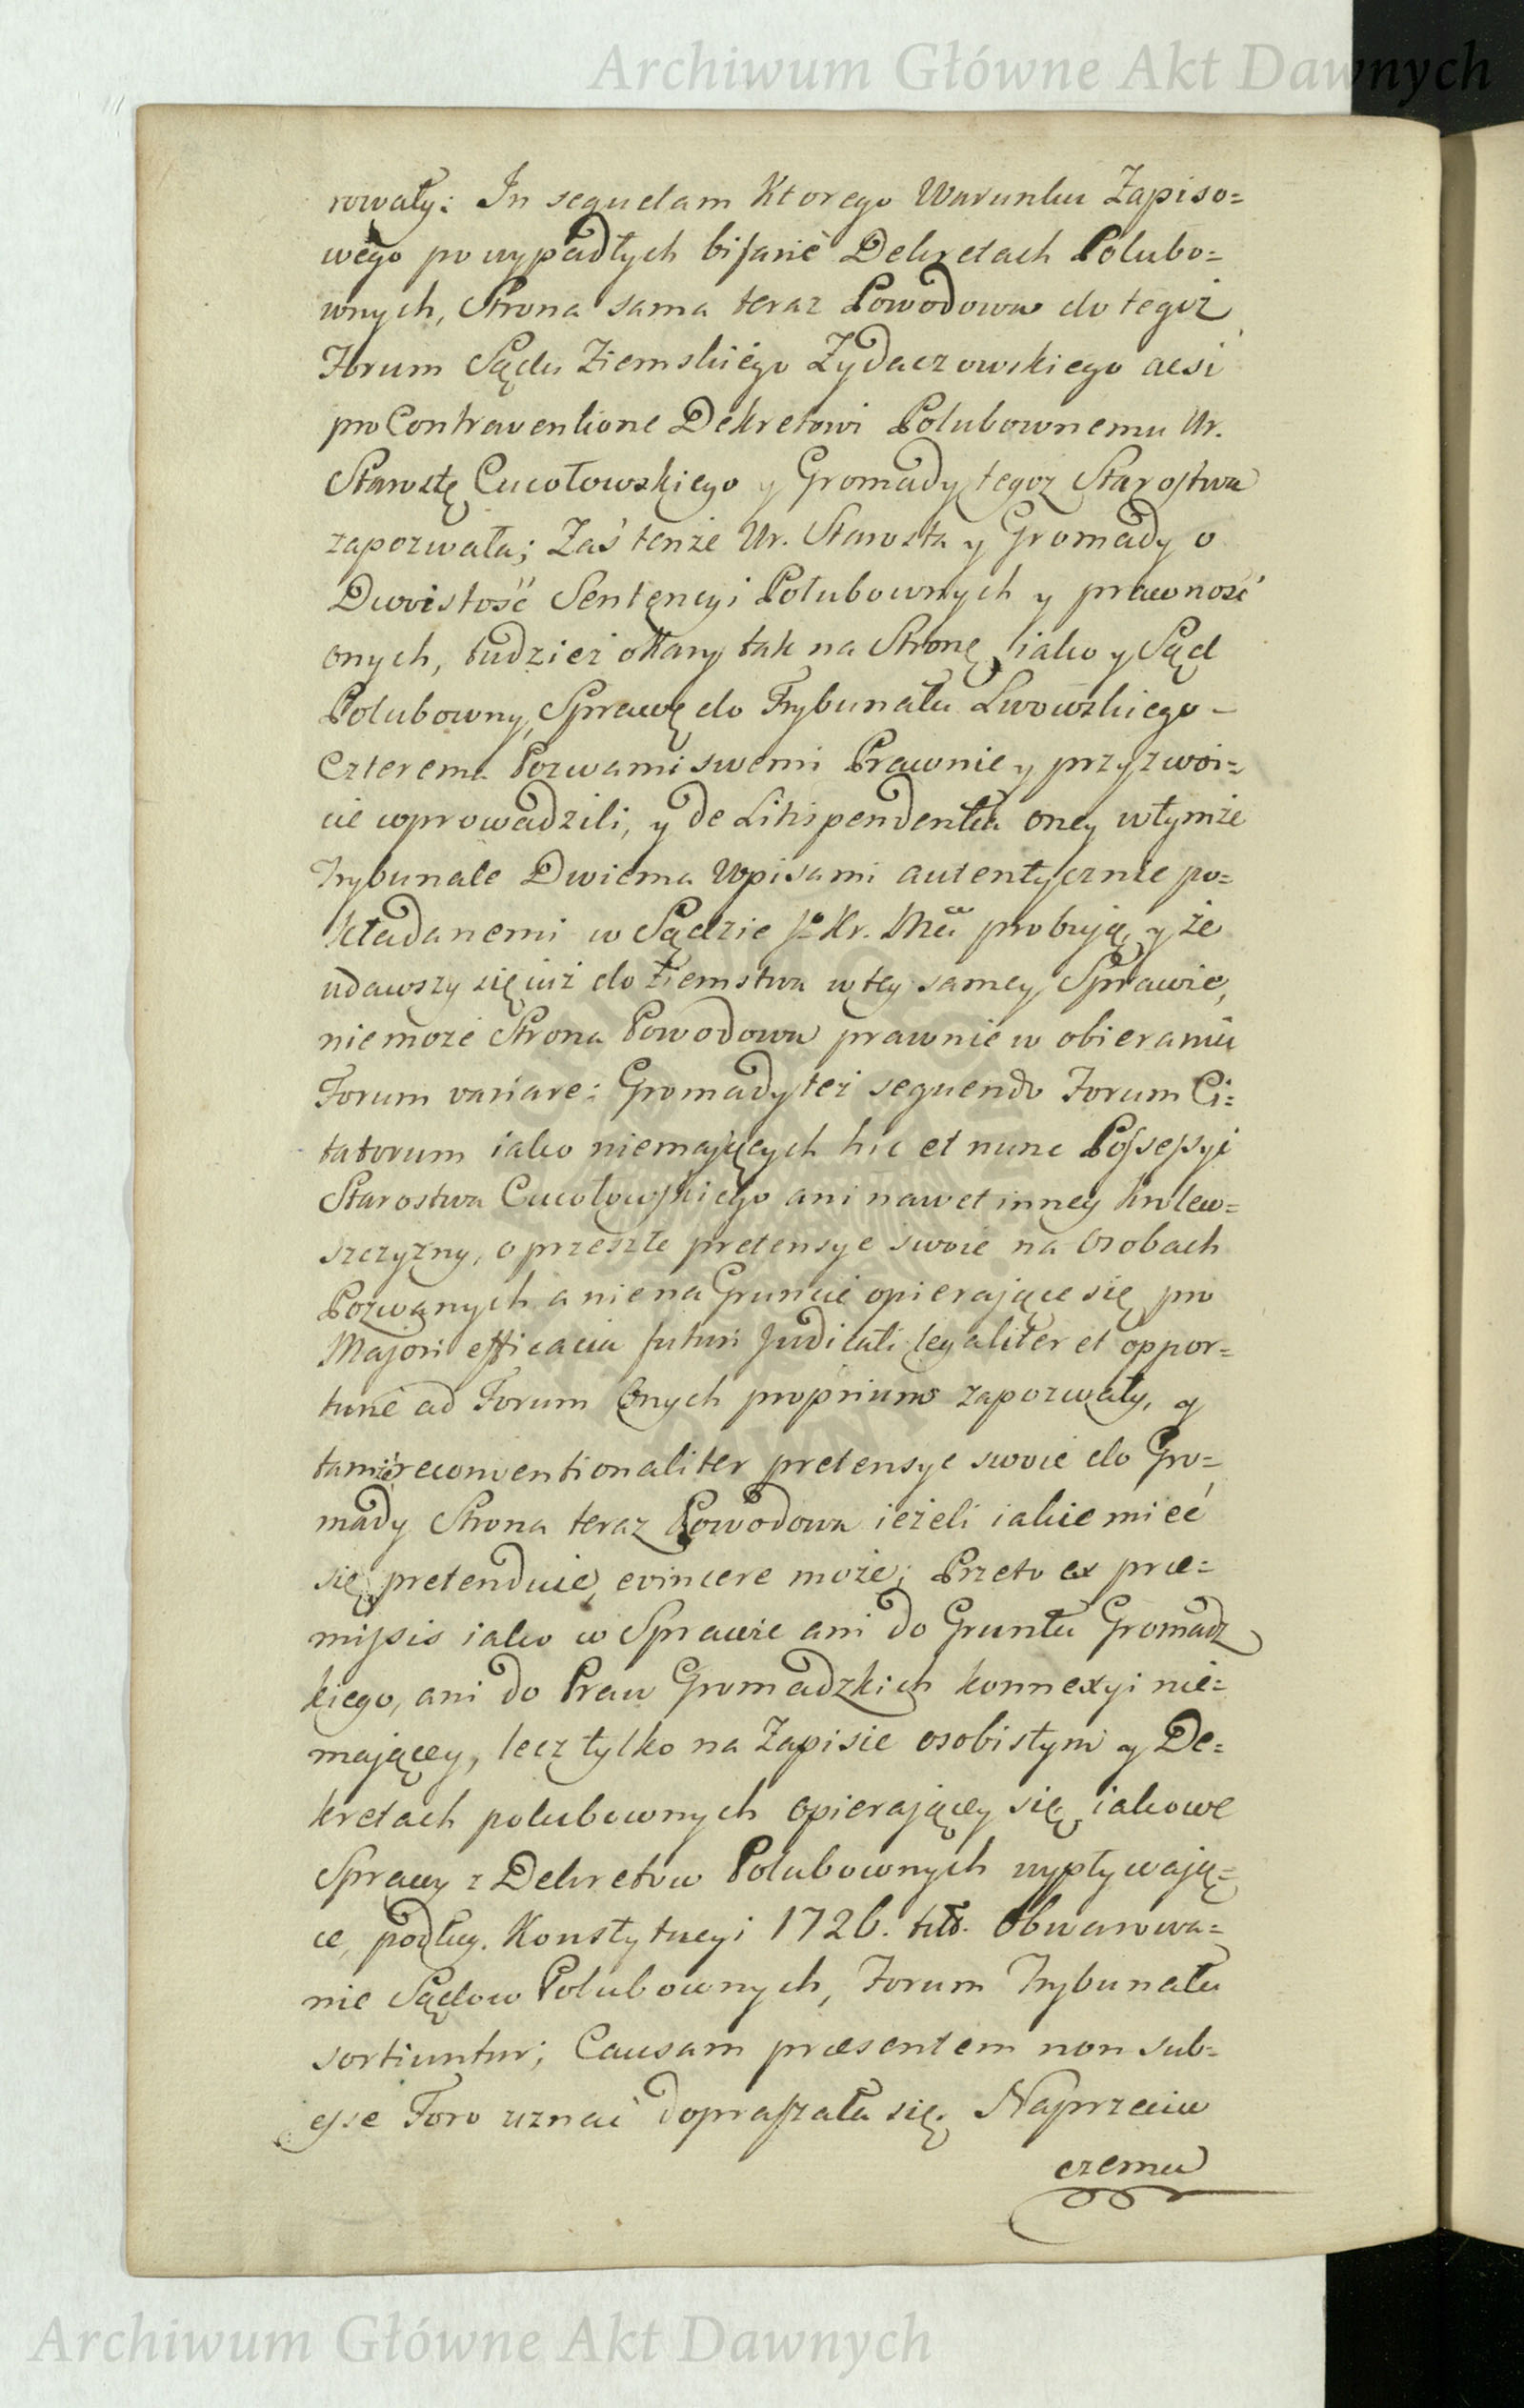 Archiwum Główne Akt Dawnych
rowały: In sequelam Ktorego Warunku Zapiso=
wego po wypadłych bifarie Dekretach Polubo=
wnych, Strona sama teraz Powodowa do tegoż
Forum Sądu Ziemskiego Zydaczowskiego acsi
pro Contraventione Dekretowi Polubownemu Ur.
Starostę Cucołowskiego y Gromady tegoż Starostwa
zapozwała; Zaś tenże Ur. Starosta y Gromady o
Dwoistość Sentencyi Polubownych y prawność
onych, tudzież o kary tak na Stronę iako y Sąd
Polubowny, Sprawę do Trybunału Lwowskiego –
Czterema Pozwami swemi Prawnie y przyzwoi=
cie wprowadzili, y de Litispendentia oney w tymże
Trybunale Dwiema Wpisami autentycznie po=
kładanemi w Sądzie J. Kr. Mci probują, y że
udawszy się iuż do Ziemstwa w tey samey Sprawie,
niemoże Strona Powodowa prawnie w obieraniu
Forum variare: Gromady też sequendo Forum Ci=
tatorum iako niemających hic et nunc Possessyi
Starostwa Cucołowskiego ani nawet inney Krolew=
szczyzny, o przeszłe pretensye swoie na Osobach
Pozwanych a nie na Gruncie opierające się pro
Majori efficacia futuri Judicati legaliter et oppor=
tune ad Forum Onych proprium zapozwały, y
tamże reconventionaliter pretensye swoie do Gro=
mady Strona teraz Powodowa ieżeli iakie mieć
się pretenduie, evincere może; Przeto ex præ=
missis iako w Sprawie ani do Gruntu Gromadz
kiego, ani do Praw Gromadzkich konnexyi nie=
mającey, lecz tylko na Zapisie osobistym y De=
kretach polubownych opierającey się, iakowe
Sprawy z Dekretow Polubownych wypływają=
ce, podług. Konstytucyi 1726. tit. Obwarowa=
nie Sądow Polubownych, Forum Trybunału
sortiuntur; Causam præsentem non sub=
esse Foro uznać dopraszała się. Naprzeciw
czemu
Archiwum Główne Akt Dawnych